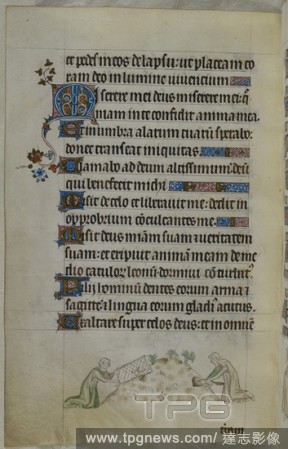 et pedes meos de lapsu: ut placeam co
ram deo in lumine viventium
Miserere mei deus miserere mei: q̄
niam in te confidit anima mea.
Et in umbra alarum tuarū sperabo:
donec transeat iniquitas.
Clamabo ad deum altissimum: deū
qui benefecit michi
Misit de celo et liberavit me: dedit in
opprobrium cōculcantes me.
Misit deus miām suam et veritatem
suam: et eripuit animam meam de me
dio catulor leonū dormivi cōturbat
Filii hominū dentes eorum arma et
sagitte: et lingua eorum gladiꝰ acutus.
Exaltare super celos deus: et in omnē
TPG
www.tpgnews.com/ 達志影像